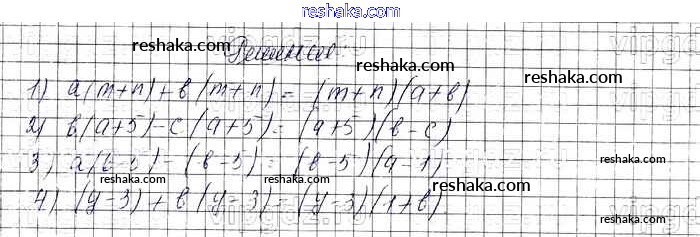 reshaka.com
Решения
1) a(m+n)+в(m+n)=(m+n)(a+в)
2) в(a+5)-c(a+5)=(a+5)(в-c)
3) a(в-5)-(в-5)=(в-5)(a-1)
4) (y-3)+в(y-3)=(y-3)(1+в)
reshaka.com
reshaka.com
reshaka.com
reshaka.com
reshaka.com
reshaka.com
reshaka.com